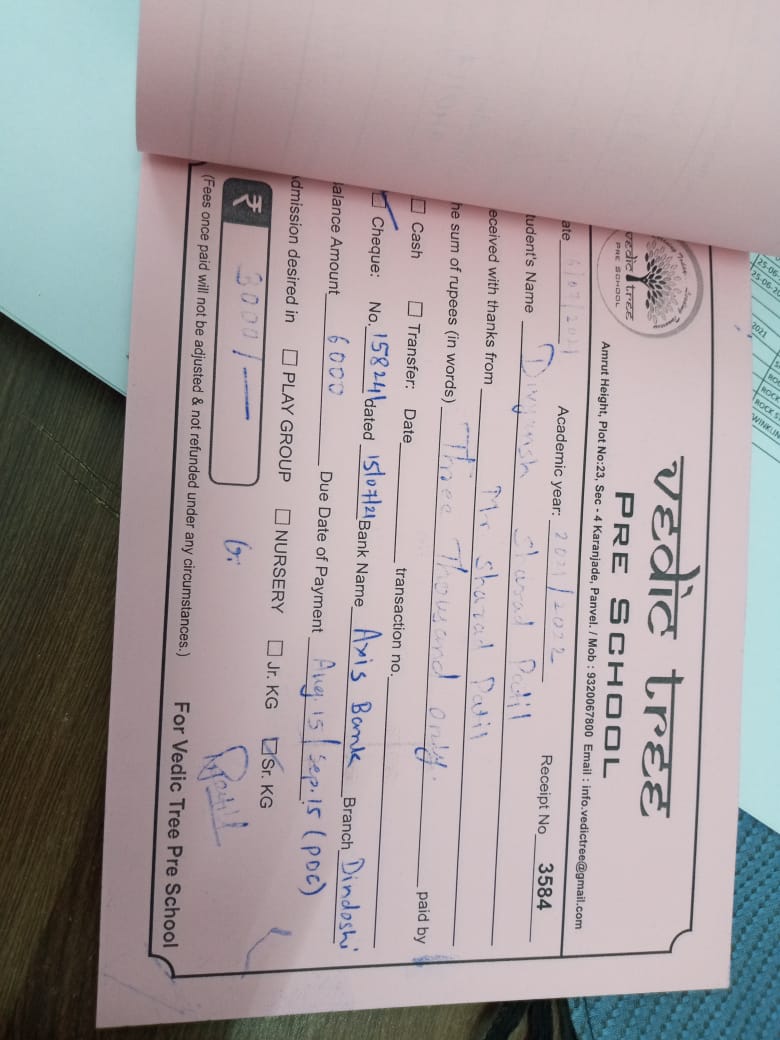 vedic tree
PRE SCHOOL
vedic tree
PRE SCHOOL
Amrut Height, Plot No:23, Sec - 4 Karanjade, Panvel. / Mob : 9320067800 Email : info.vedictree@gmail.com
ate /07/2021 Academic year: 2021/2022 Receipt No 3584
tudent's Name Divyansh Sharad Patil
eceived with thanks from Mr Sharad Patil
he sum of rupees (in words) Three Thousand only. paid by
Cash Transfer: Date transaction no.
Cheque: No. 158241 dated 15/07/21 Bank Name Axis Bank Branch Dindoshi
alance Amount 6000 Due Date of Payment Aug.15/Sep.15 (PDC)
dmission desired in PLAY GROUP NURSERY Jr. KG Sr. KG
₹ 3000/-
(Fees once paid will not be adjusted & not refunded under any circumstances.) For Vedic Tree Pre School
25-06
25-06-20
2021
ROCK
ROCK S
WINKLIN